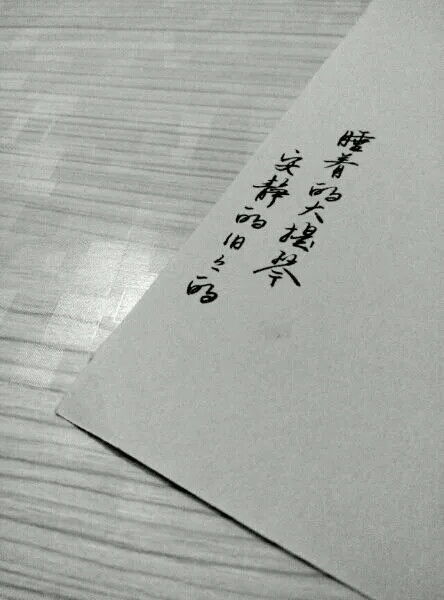 睡着的大提琴
安静的旧旧的